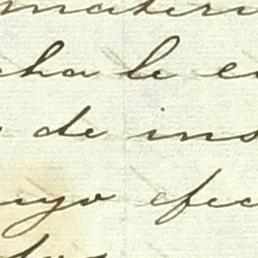 materi
cha le e
de ins
uyo efec
dos